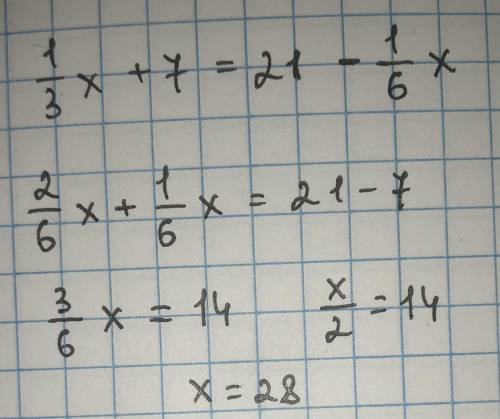 1/3 x + 7 = 21 - 1/6 x
2/6 x + 1/6 x = 21 - 7
3/6 x = 14 x/2 = 14
x = 28